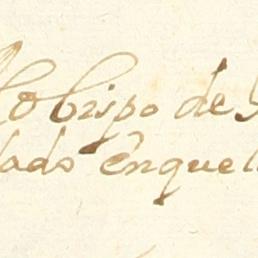 Obispo de
lado ênque